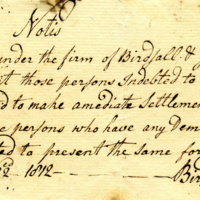 Notis
under the firm of Birdsall &
t those persons Indebted to
d to make amediate Settlemen
e persons who have any Dem
ted to present the same for
1812
Bir